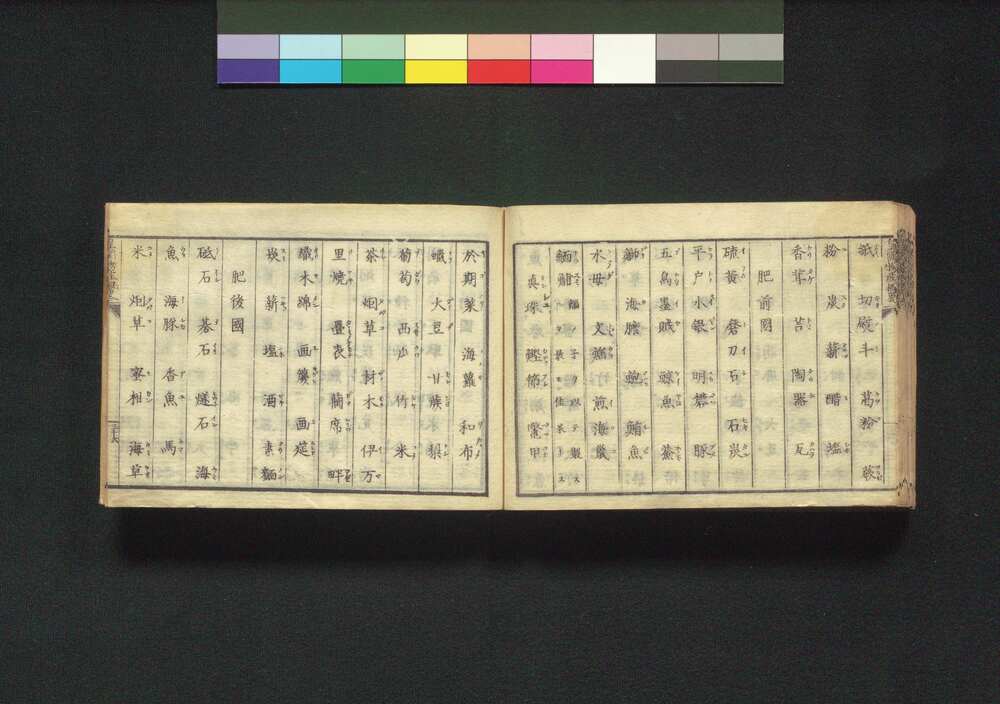 紙 切熨斗 葛粉
粉 炭 薪 醋 塩
香茸 苫 陶器 瓦
肥前国
硫黄 磨刀石 石炭
平戸水銀 明礬 豚
五島墨 鯨魚
海膽 鮪魚
水母 煎海鼠
真珠 鰹節 鼈甲
於期菜 海蘿 和布
蠟 大豆 甘蔗
葡萄 西瓜 竹 米
茶 烟草 材木 伊万
里焼 畳表 藺席 畔
織木綿 画 画筵
炭 薪 塩 酒 素麺
肥後國
砥石 碁石 燧石 海
魚 海豚 香魚 馬
米 烟草 蜜柑 海草